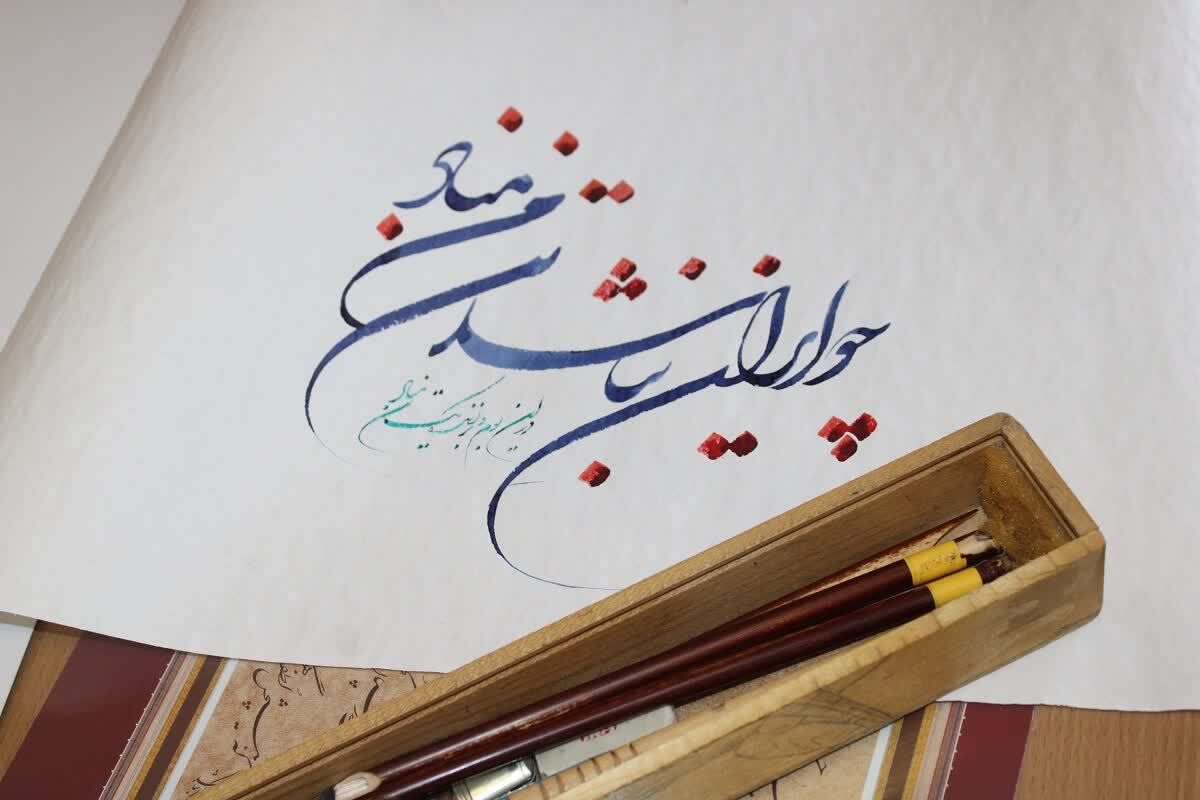 چو ایران نباشد تن من مباد
در این بوم و بر زنده یک تن مباد